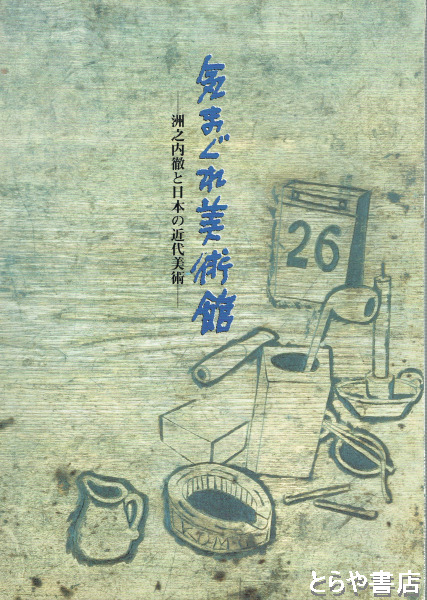 気まぐれ美術館
—洲之内徹と日本の近代美術—
26
とらや書店